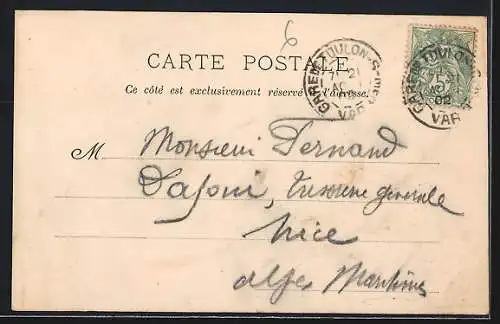 6
CARTE POSTALE
Ce côté est exclusivement réservé à l'adresse.
GARE DE TOULON-S-MER
21
VAR
5
GARE DE TOULON
02
VAR
M Monsieur Fernand
générale
Nice
Alpes Maritimes